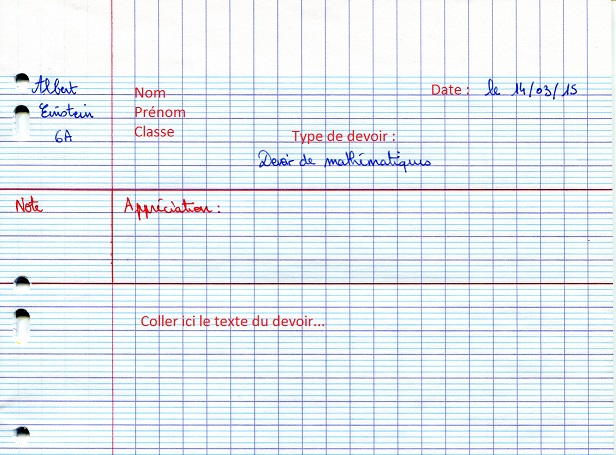 Albert Nom Date : le 14/03/15
Einstein Prénom
6A Classe Type de devoir :
Devoir de mathématiques
Note Appréciation :
Coller ici le texte du devoir...